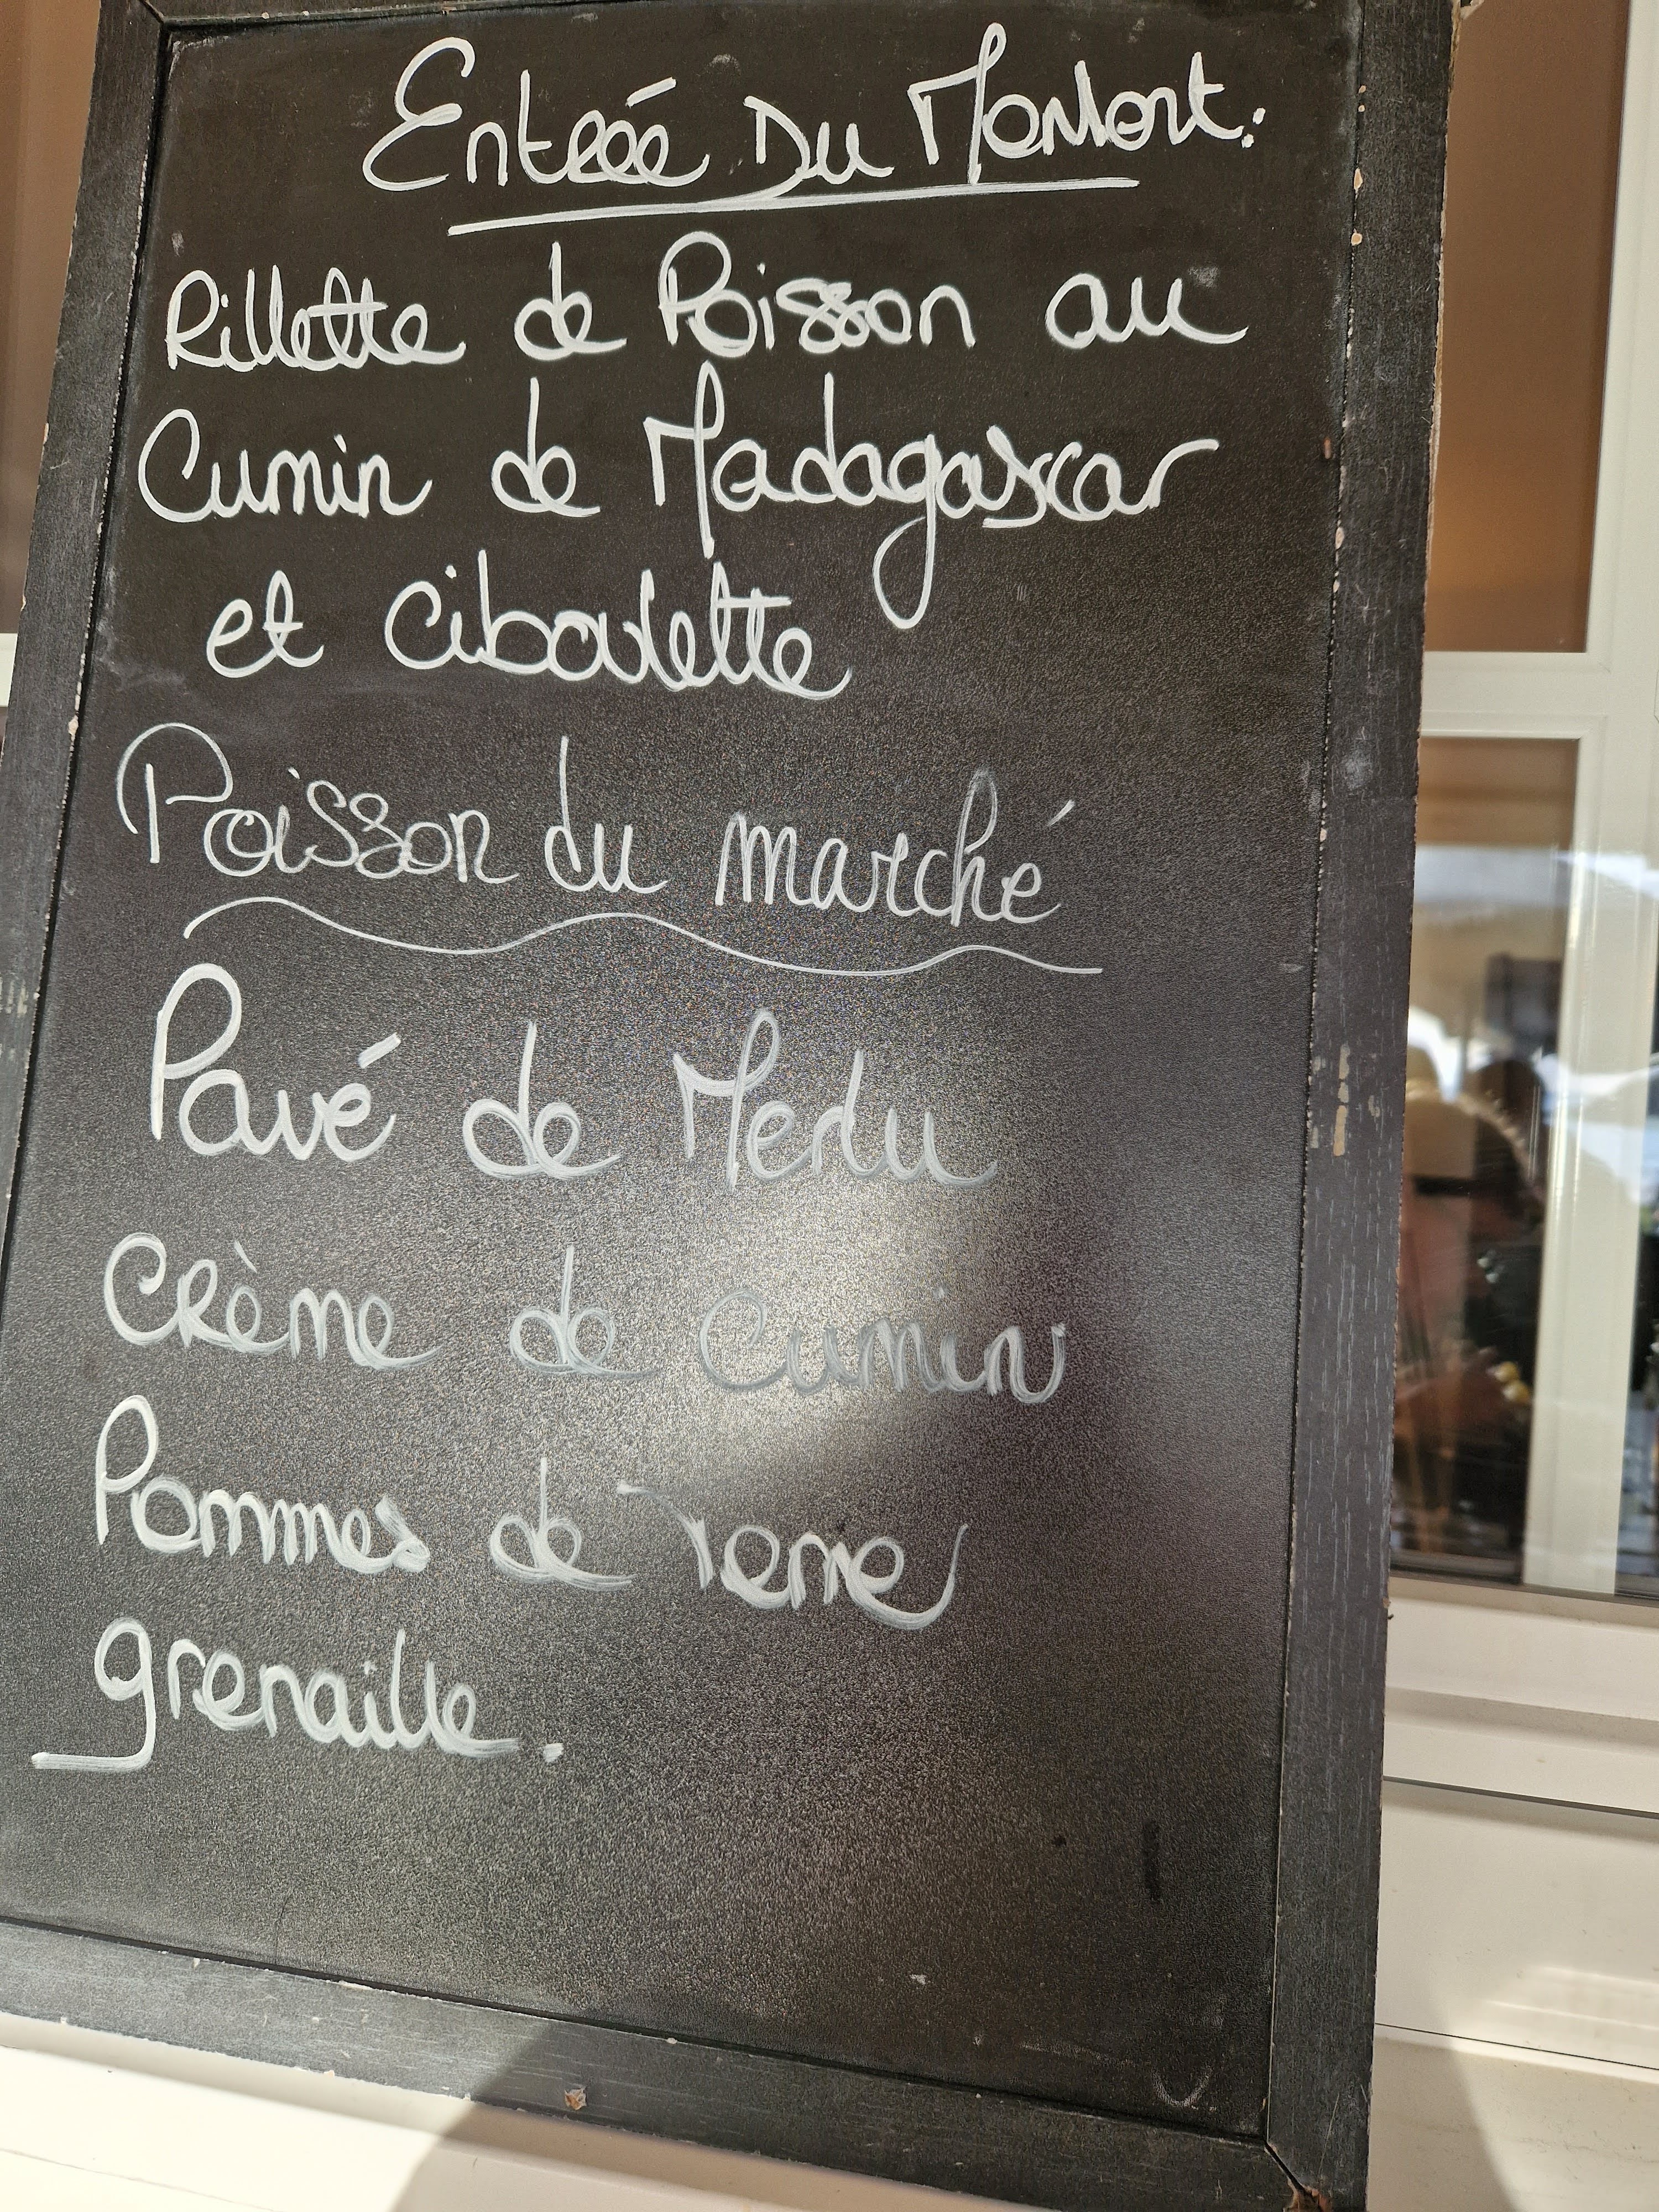 Entrée Du Monfort:
Rillette de Poisson au
Cumin de Madagascar
et Ciboulette
Poisson du marché
Pavé de Merlu
Crème de Cumin
Pommes de Terre
grenaille.